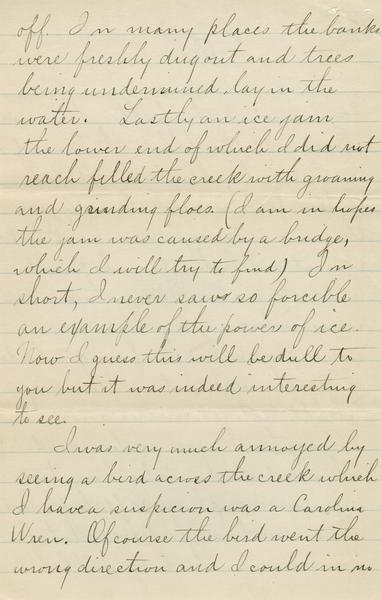 off. In many places the banks
were freshly dug out and trees
being undermined lay in the
water. Lastly an ice jam
the lower end of which I did not
reach filled the creek with groaning
and grinding floes. (I am in hopes
the jam was caused by a bridge,
which I will try to find) In
short, I never saw so forcible
an example of the power of ice.
Now I guess this will be dull to
you but it was indeed interesting
to see.
I was very much annoyed by
seeing a bird across the creek which
I have a suspicion was a Carolina
Wren. Of course the bird went the
wrong direction and I could in no